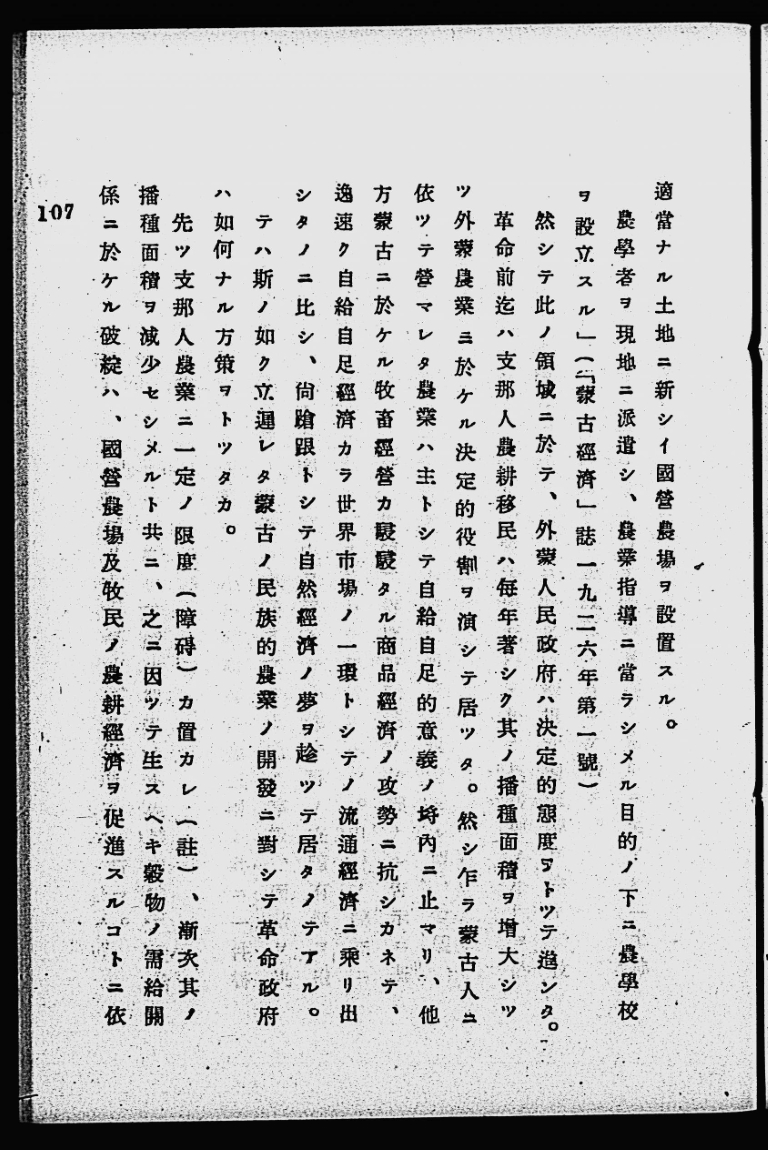 適當ナル土地ニ新シイ國營農場ヲ設置スル。
農學者ヲ現地ニ派遣シ、農業指導ニ當ラシメル目的ノ下ニ農學校
ヲ設立スル」(「蒙古經濟」誌一九二六年第一號)
然シテ此ノ領域ニ於テ、外蒙人民政府ハ決定的態度ヲトツテ進ンタ。
革命前迄ハ支那人農耕移民ハ每年著シク其ノ播種面積ヲ增大シツ
ツ外蒙農業ニ於ケル決定的役割ヲ演シテ居ツタ。然シ乍ラ蒙古人ニ
依ツテ營マレタ農業ハ主トシテ自給自足的意義ノ埓內ニ止マリ、他
方蒙古ニ於ケル牧畜經營カ駸駸タル商品經濟ノ攻勢ニ抗シカネテ、
逸速ク自給自足經濟カラ世界市場ノ一環トシテノ流通經濟ニ乘リ出
シタノニ比シ、尙蹌踉トシテ自然經濟ノ夢ヲ趁ツテ居タノテアル。
テハ斯ノ如ク立遲レタ蒙古ノ民族的農業ノ開發ニ對シテ革命政府
ハ如何ナル方策ヲトツタカ。
先ツ支那人農業ニ一定ノ限度(障碍)カ置カレ(註)、漸次其ノ
播種面積ヲ減少セシメルト共ニ、之ニ因ツテ生スヘキ穀物ノ需給關
係ニ於ケル破綻ハ、國營農場及牧民ノ農耕經濟ヲ促進スルコトニ依
107